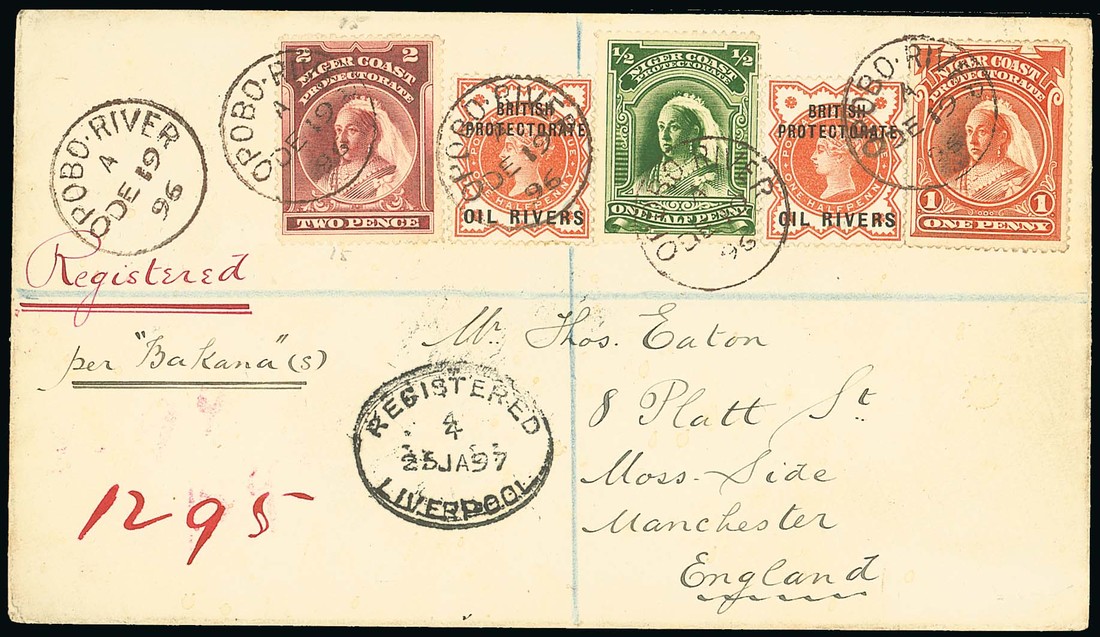 OPOBO·RIVER
A
DE 19
96
OPOBO·RIV
A
DE 19
96
2 2
NIGER COAST
PROTECTORATE
TWO PENCE
OPOBO·RIVER
DE 19
96
BRITISH
PROTECTORATE
POSTAGE REVENUE
HALFPENNY
OIL RIVERS
1/2 1/2
NIGER COAST
PROTECTORATE
ONE HALF PENNY
96
BRITISH
PROTECTORATE
ONE HALFPENNY
OIL RIVERS
OPOBO·RIVER
A
DE 19
96
NIGER COAST
PROTECTORATE
1 1
ONE PENNY
15
Registered
per "Bakana" (s)
1295
REGISTERED
4
25JA97
LIVERPOOL
Mr. Thos. Eaton
8 Platt St.
Moss-Side
Manchester
England